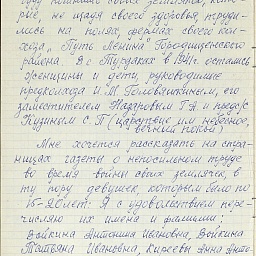 рые, не щадя своего здоровья, труди-
лись на полях, фермах своего кол-
хоза "Путь Ленина" Городищенского
района. В с Турдаках в 1941г. остались
женщины и дети, руководимые
предколхоза И.М. Головяшкиным, его
заместителем Назаровым Г.А. и пред. с/с
Кузиным С. П (царствие им небесное,
вечный покой)
Мне хочется рассказать на стра-
ницах газеты о непосильном труде
во время войны своих землячек, в
ту пору девушек, которым было по
15-20 лет. Я с удовольствием пере-
числяю их имена и фамилии:
Войкина Антонина Ивановна, Войкина
Татьяна Ивановна, Киреевы Анна Анто-